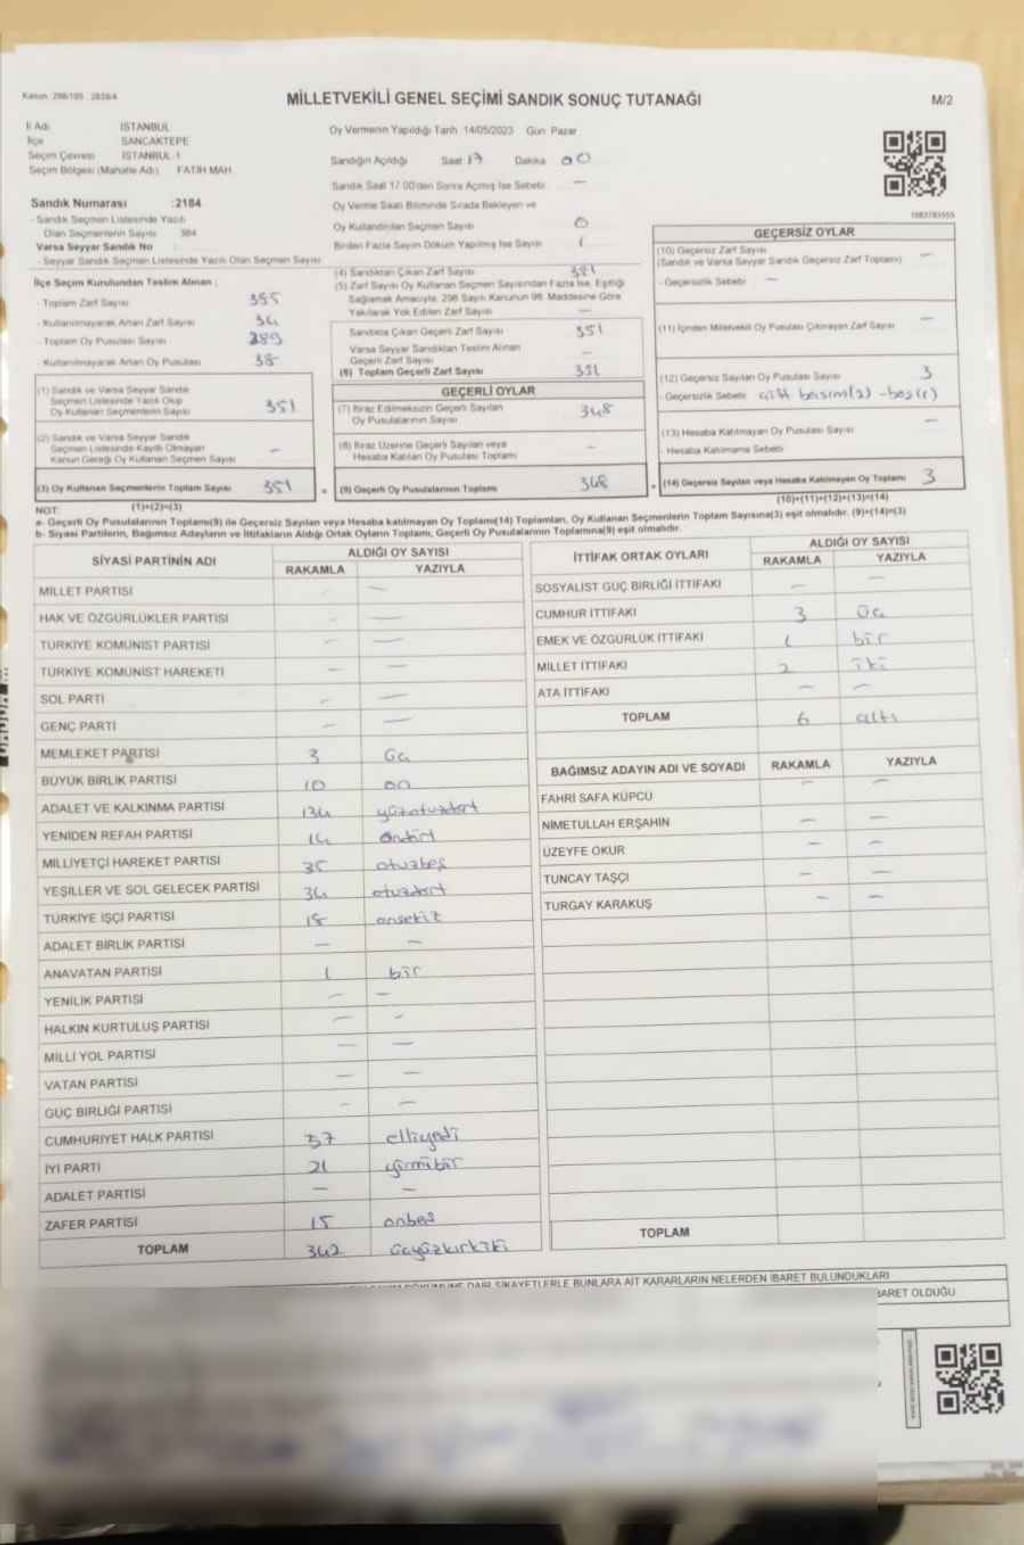 Kanun: 298/105 2839/4
MİLLETVEKİLİ GENEL SEÇİMİ SANDIK SONUÇ TUTANAĞI
M/2
İl Adı İSTANBUL
İlçe SANCAKTEPE
Seçim Çevresi İSTANBUL-1
Seçim Bölgesi (Mahalle Adı) FATİH MAH.
Oy Vermenin Yapıldığı Tarih 14/05/2023 Gün Pazar
Sandığın Açıldığı Saat 17 Dakika 00
Sandık Saat 17.00'den Sonra Açmış İse Sebebi —
Oy Verme Saati Bitiminde Sırada Bekleyen ve
Oy Kullandırılan Seçmen Sayısı 0
Birden Fazla Sayım Döküm Yapılmış İse Sayısı
Sandık Numarası :2184
- Sandık Seçmen Listesinde Yazılı
Olan Seçmenlerin Sayısı 384
Varsa Seyyar Sandık No
- Seyyar Sandık Seçmen Listesinde Yazılı Olan Seçmen Sayısı
İlçe Seçim Kurulundan Teslim Alınan :
- Toplam Zarf Sayısı 355
- Kullanılmayarak Artan Zarf Sayısı 34
- Toplam Oy Pusulası Sayısı 389
- Kullanılmayarak Artan Oy Pusulası 38
(1) Sandık ve Varsa Seyyar Sandık
Seçmen Listesinde Yazılı Olup
Oy Kullanan Seçmenlerin Sayısı 351
(2) Sandık ve Varsa Seyyar Sandık
Seçmen Listesinde Kayıtlı Olmayan
Kanun Gereği Oy Kullanan Seçmen Sayısı —
(3) Oy Kullanan Seçmenlerin Toplam Sayısı 351
(1)+(2)=(3)
(4) Sandıktan Çıkan Zarf Sayısı 351
(5) Zarf Sayısı Oy Kullanan Seçmen Sayısından Fazla İse, Eşitliği
Sağlamak Amacıyla, 298 Sayılı Kanunun 98. Maddesine Göre
Yakılarak Yok Edilen Zarf Sayısı —
Sandıkta Çıkan Geçerli Zarf Sayısı 351
Varsa Seyyar Sandıktan Teslim Alınan
Geçerli Zarf Sayısı —
(6) Toplam Geçerli Zarf Sayısı 351
GEÇERLİ OYLAR
(7) İtiraz Edilmeksizin Geçerli Sayılan
Oy Pusulalarının Sayısı 348
(8) İtiraz Üzerine Geçerli Sayılan veya
Hesaba Katılan Oy Pusulası Toplamı —
(9) Geçerli Oy Pusulalarının Toplamı 348
GEÇERSİZ OYLAR
(10) Geçersiz Zarf Sayısı
(Sandık ve Varsa Seyyar Sandık Geçersiz Zarf Toplamı) —
- Geçersizlik Sebebi —
(11) İçinden Milletvekili Oy Pusulası Çıkmayan Zarf Sayısı —
(12) Geçersiz Sayılan Oy Pusulası Sayısı 3
Geçersizlik Sebebi çift basım(2) - boş(1)
(13) Hesaba Katılmayan Oy Pusulası Sayısı —
- Hesaba Katılmama Sebebi
(14) Geçersiz Sayılan veya Hesaba Katılmayan Oy Toplamı 3
(10)+(11)+(12)+(13)=(14)
NOT:
a- Geçerli Oy Pusulalarının Toplamı(9) ile Geçersiz Sayılan veya Hesaba katılmayan Oy Toplamı(14) Toplamları, Oy Kullanan Seçmenlerin Toplam Sayısına(3) eşit olmalıdır. (9)+(14)=(3)
b- Siyasi Partilerin, Bağımsız Adayların ve İttifakların Aldığı Ortak Oyların Toplamı, Geçerli Oy Pusulalarının Toplamına(9) eşit olmalıdır.
SİYASİ PARTİNİN ADI ALDIĞI OY SAYISI
RAKAMLA YAZIYLA
MİLLET PARTİSİ — —
HAK VE ÖZGÜRLÜKLER PARTİSİ — —
TÜRKİYE KOMÜNİST PARTİSİ — —
TÜRKİYE KOMÜNİST HAREKETİ — —
SOL PARTİ — —
GENÇ PARTİ — —
MEMLEKET PARTİSİ 3 üç
BÜYÜK BİRLİK PARTİSİ 10 on
ADALET VE KALKINMA PARTİSİ 134 yüzotuzdört
YENİDEN REFAH PARTİSİ 14 ondört
MİLLİYETÇİ HAREKET PARTİSİ 35 otuzbeş
YEŞİLLER VE SOL GELECEK PARTİSİ 34 otuzdört
TÜRKİYE İŞÇİ PARTİSİ 18 onsekiz
ADALET BİRLİK PARTİSİ — —
ANAVATAN PARTİSİ 1 bir
YENİLİK PARTİSİ — —
HALKIN KURTULUŞ PARTİSİ — —
MİLLİ YOL PARTİSİ — —
VATAN PARTİSİ — —
GÜÇ BİRLİĞİ PARTİSİ — —
CUMHURİYET HALK PARTİSİ 57 elliyedi
İYİ PARTİ 21 yirmibir
ADALET PARTİSİ — —
ZAFER PARTİSİ 15 onbeş
TOPLAM 342 üçyüzkırkiki
İTTİFAK ORTAK OYLARI ALDIĞI OY SAYISI
RAKAMLA YAZIYLA
SOSYALİST GÜÇ BİRLİĞİ İTTİFAKI — —
CUMHUR İTTİFAKI 3 üç
EMEK VE ÖZGÜRLÜK İTTİFAKI 1 bir
MİLLET İTTİFAKI 2 iki
ATA İTTİFAKI — —
TOPLAM 6 altı
BAĞIMSIZ ADAYIN ADI VE SOYADI RAKAMLA YAZIYLA
FAHRİ SAFA KÜPCÜ — —
NİMETULLAH ERŞAHİN — —
ÜZEYFE OKUR — —
TUNCAY TAŞÇI — —
TURGAY KARAKUŞ — —
TOPLAM
DÖKÜMÜNE DAİR ŞİKAYETLERLE BUNLARA AİT KARARLARIN NELERDEN İBARET BULUNDUKLARI
İBARET OLDUĞU